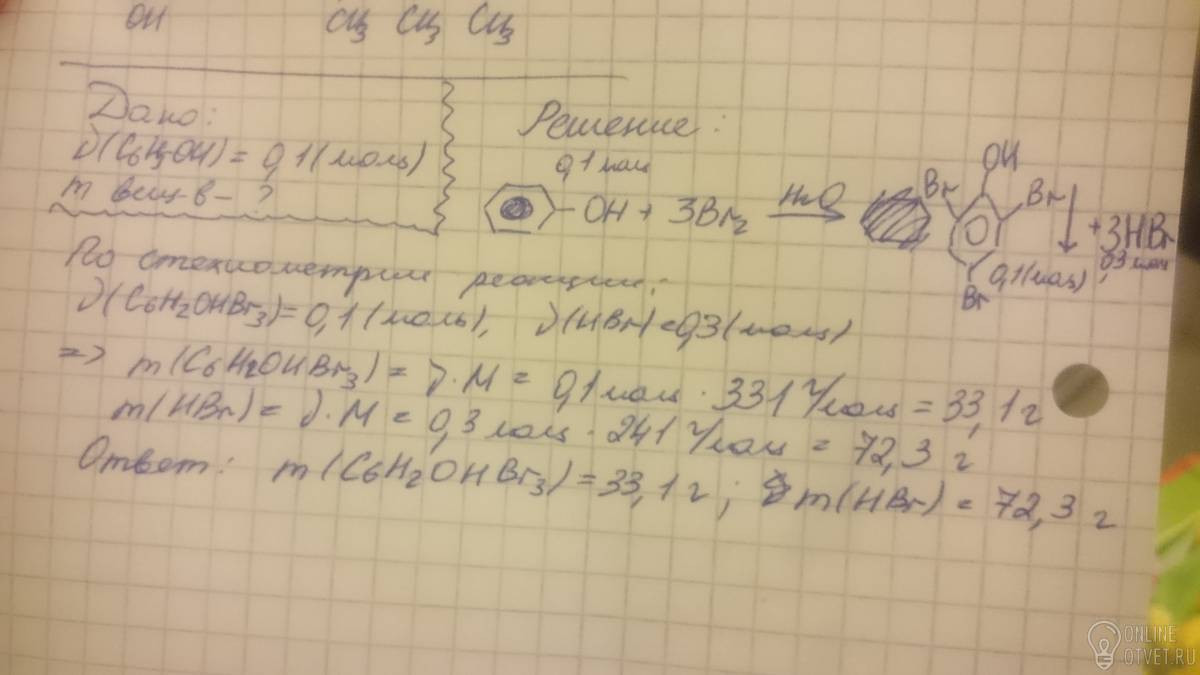 OH CH3 CH3 CH3
Дано:
ν(C6H5OH) = 0,1 (моль)
m вещ-в - ?
Решение:
0,1 моль
OH + 3Br2 H2O OH Br Br Br 0,1 (моль) + 3HBr 0,3 моль
По стехиометрии реакции:
ν(C6H2OHBr3) = 0,1 (моль), ν(HBr) = 0,3 (моль)
=> m(C6H2OHBr3) = ν · M = 0,1 моль · 331 г/моль = 33,1 г
m(HBr) = ν · M = 0,3 моль · 241 г/моль = 72,3 г
Ответ: m(C6H2OHBr3) = 33,1 г; m(HBr) = 72,3 г
ONLINE
OTVET.RU